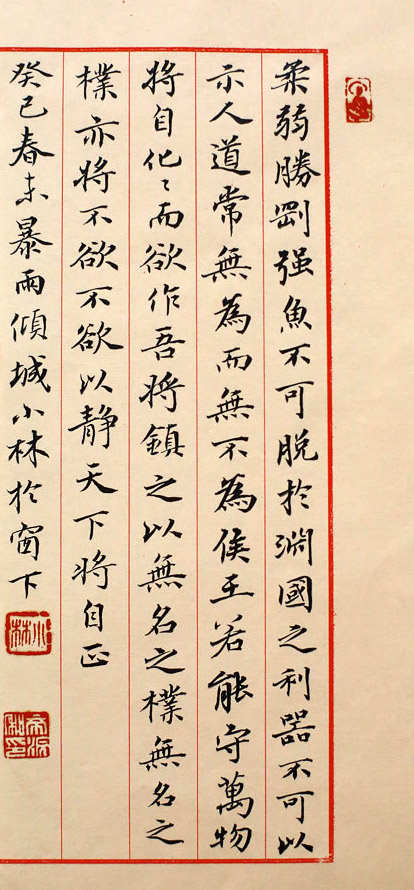 柔弱勝剛强魚不可脱於淵國之利器不可以
示人道常無為而無不為侯王若能守萬物
將自化〻而欲作吾將鎮之以無名之樸無名之
樸亦將不欲不欲以静天下將自正
癸巳春末暴雨傾城小林於窗下
小林